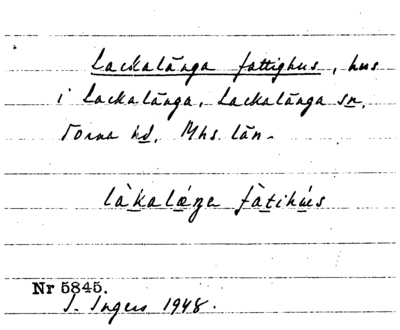 Lackalänga fattighus, hus
i Lackalänga, Lackalänga sn,
Torna hd. Mhs. län.
làkalæŋa fàtihùs
Nr 5845.
I. Ingers 1948.